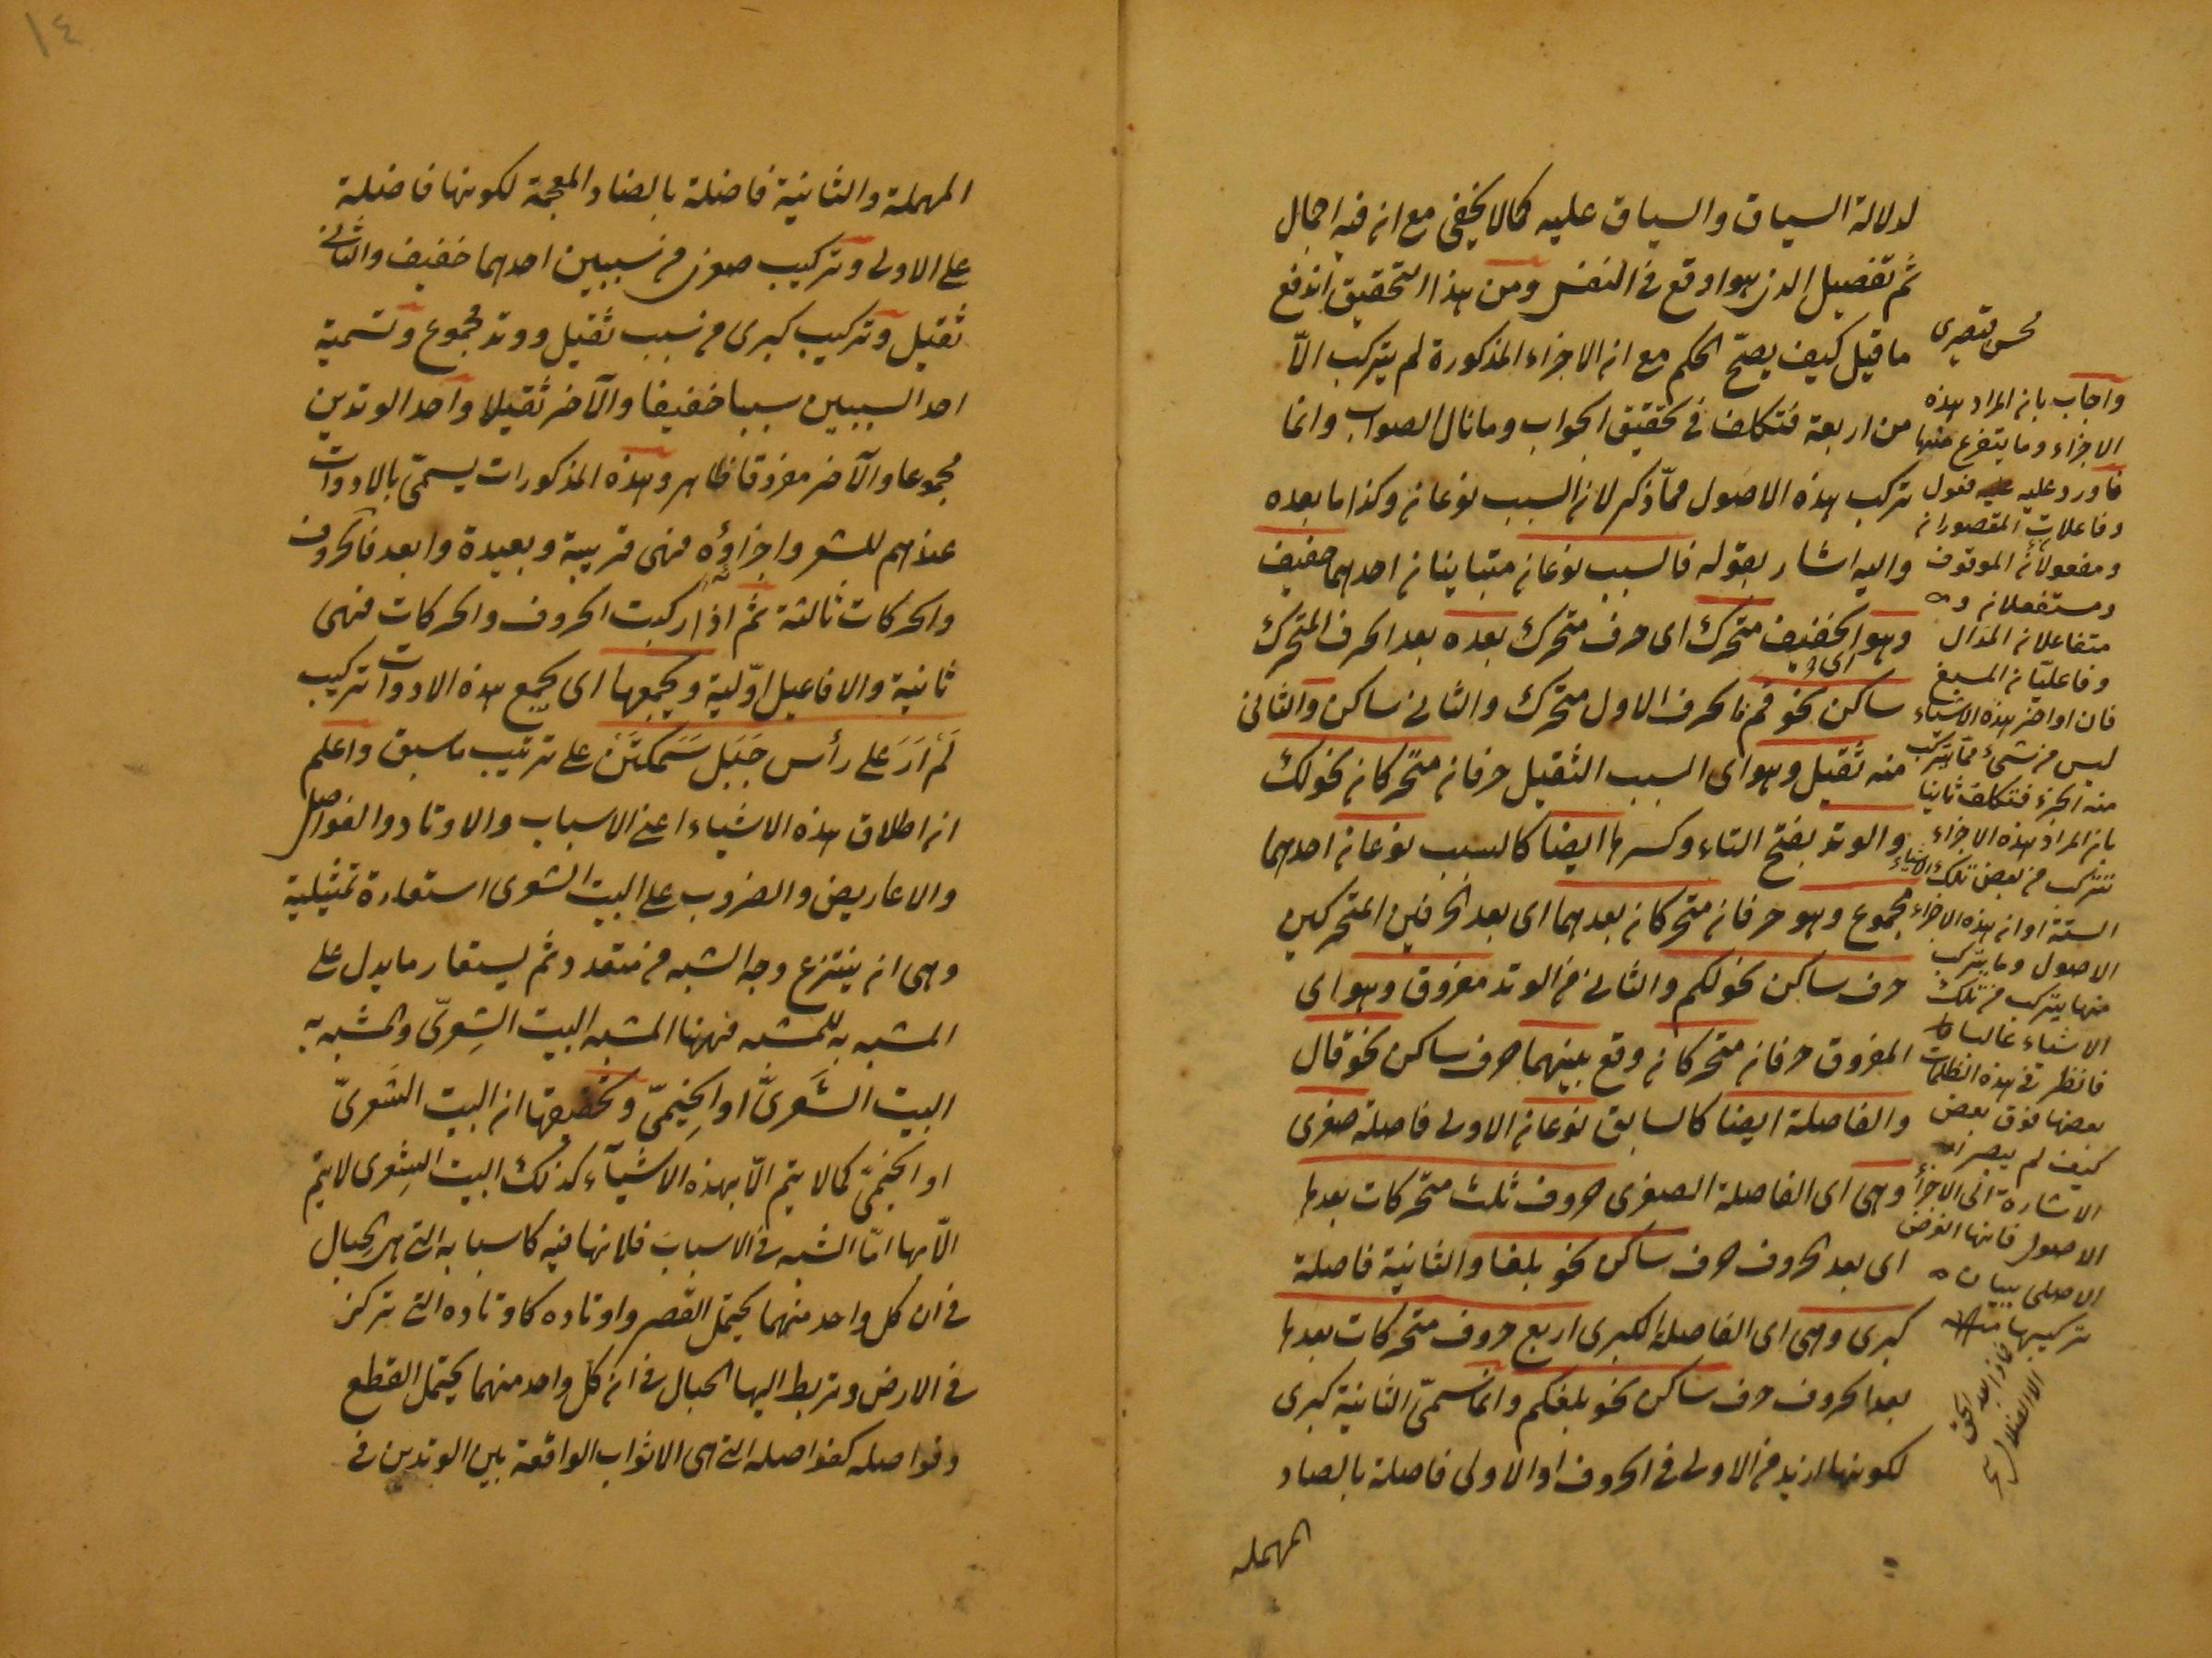 لدلالة السياق والسياق عليه كما لا يخفى مع انه فيه اجمال
ثم تفصيل الذى هو اوقع فى النفس ومن هذا التحقيق اندفع
ما قيل كيف يصحّ الحكم مع ان الاجزاء المذكورة لم يتركب الّا
من اربعة فتكلف فى تحقيق الجواب وما نال الصواب وانما
تركب هذه الاصول ممّا ذكر لان السبب نوعان وكذا ما بعده
واليه اشار بقوله فالسبب نوعان متباينان احدهما خفيف
وهو الخفيف متحرك اى حرف متحرك بعده بعد الحرف المتحرك
ساكن نحو قم فالحرف الاول متحرك والثانى ساكن والثانى
منه ثقيل وهو اى السبب الثقيل حرفان متحركان نحو لك
والوتد بفتح التاء وكسرها ايضا كالسبب نوعان احدهما
مجموع وهو حرفان متحركان بعدهما اى بعد الحرفين المتحركين
حرف ساكن نحو لكم والثانى من الوتد مفروق وهو اى
المفروق حرفان متحركان وقع بينهما حرف ساكن نحو قال
والفاصلة ايضا كالسابق نوعان الاولى فاصلة صغرى
وهى اى الفاصلة الصغرى حروف ثلث متحركات بعدها
اى بعد الحروف حرف ساكن نحو بلغا والثانية فاصلة
كبرى وهى اى الفاصلة الكبرى اربع حروف متحركات بعدها
بعد الحروف حرف ساكن نحو بلغكم وانما سمّى الثانية كبرى
لكونها ازيد من الاولى فى الحروف او الاولى فاصلة بالصاد
المهملة
محسن قيصرى
واجاب بان المراد هذه
الاجزاء وما يتفرع منها
فاورد عليه فعول
وفاعلات المقصوران
ومفعولات الموقوف
ومستفعلان و
متفاعلان المذال
وفاعليّان المسبغ
فان اواخر هذه الاشياء
ليس من شئ مما يتركب
منه الجزء فتكلف ثانيا
بان المراد هذه الاجزاء
تتركب من بعض تلك الاشياء
الستة او ان هذه الاجزاء
الاصول وما يتركب
منها يتركب من تلك
الاشياء غالبا
فانظر فى هذه الظلمات
بعضها فوق بعض
كيف لم يصر
الاشارة الى الاجزاء
الاصول فانها الغرض
الاصلى ببيان
تركيبها
فماذا بعد الحق
الا الضلال
١٤
المهملة والثانية فاضلة بالضاد المعجمة لكونها فاضلة
على الاولى وتركيب صغرى من سببين احدهما خفيف والثانى
ثقيل وتركيب كبرى من سبب ثقيل ووتد مجموع وتسمية
احد السببين سببا خفيفا والآخر ثقيلا واحد الوتدين
مجموعا والآخر مفروقا ظاهر وهذه المذكورات يسمّى بالادوات
عندهم للشعر واجزاؤه فهى قريبة وبعيدة وابعد فالحروف
والحركات ثالثة ثم اذا ركبت الحروف والحركات فهى
ثانية والافاعيل اوّلية ويجمعها اى يجمع هذه الادوات تركيب
لَمْ اَرَ عَلى رأس جَبَل سَمَكَتَن على ترتيب ما سبق واعلم
ان اطلاق هذه الاشياء اعنى الاسباب والاوتاد والفواصل
والاعاريض والضروب على البيت الشعرى استعارة تمثيلية
وهى ان ينتزع وجه الشبه من متعدد ثم يستعار ما يدل على
المشبه به للمشبه فههنا المشبه البيت الشِعرىّ والمشبه به
البيت الشَعرىّ او الخِيَمىّ وتحقيقها ان البيت الشَعرىّ
او الخيمىّ كما لا يتم الّا بهذه الاشيآء كذلك البيت الشِعرى لا يتم
الّا بها امّا الشبه فى الاسباب فلانها فيه كاسبابه التى هى الحبال
فى ان كل واحد منهما يحتمل القصر واوتاده كاوتاده التى تركز
فى الارض وتربط اليها الحبال فى ان كل واحد منهما يحتمل القطع
وفواصله كفواصله التى هى الاثواب الواقعة بين الوتدين فى